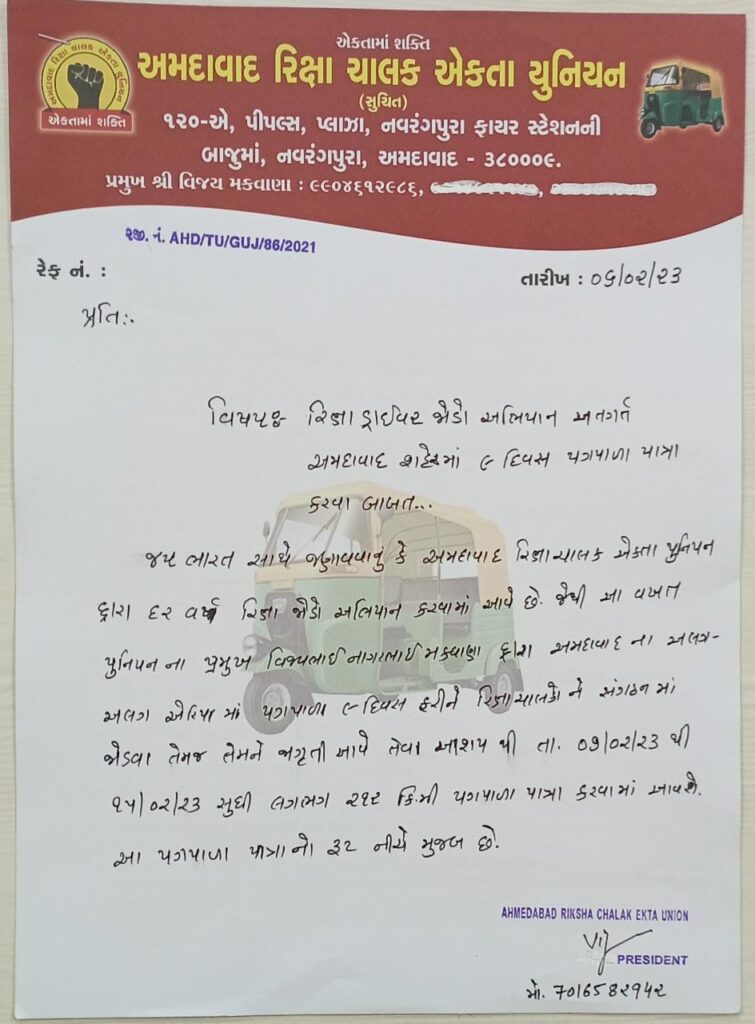 એકતામાં શક્તિ
અમદાવાદ રિક્ષા ચાલક એકતા યુનિયન
(સુચિત)
અમદાવાદ રિક્ષા ચાલક એકતા યુનિયન
એકતામાં શક્તિ
૧૨૦-એ, પીપલ્સ, પ્લાઝા, નવરંગપુરા ફાયર સ્ટેશનની
બાજુમાં, નવરંગપુરા, અમદાવાદ - ૩૮૦૦૦૯.
પ્રમુખ શ્રી વિજય મકવાણા : ૯૯૦૪૬૧૨૯૮૬,
રજી. નં. AHD/TU/GUJ/86/2021
રેફ નં. :
તારીખ : ૦૬/૦૨/૨૩
પ્રતિ:.
વિષયઃ રિક્ષા ડ્રાઈવર જોડો અભિયાન અતગર્ત
અમદાવાદ શહેરમાં ૯ દિવસ પગપાળા યાત્રા
કરવા બાબત...
જય ભારત સાથે જણાવવાનું કે અમદાવાદ રિક્ષાચાલક એકતા યુનિયન
દ્વારા દર વર્ષે રિક્ષા જોડો અભિયાન કરવામાં આવે છે. જેથી આ વખત
યુનિયન ના પ્રમુખ વિજયભાઈ નાગરભાઈ મકવાણા દ્વારા અમદાવાદ ના અલગ-
અલગ એરિયા માં પગપાળા ૯ દિવસ ફરીને રિક્ષાચાલકો ને સંગઠન માં
જોડવા તેમજ તેમને જાગૃતી આવે તેવા આશય થી તા. ૦૭/૦૨/૨૩ થી
૧૫/૦૨/૨૩ સુધી લગભગ ૨૧૨ કિ.મી પગપાળા યાત્રા કરવામાં આવશે.
આ પગપાળા યાત્રાનો રૂટ નીચે મુજબ છે.
AHMEDABAD RIKSHA CHALAK EKTA UNION
PRESIDENT
મો. 7016582942